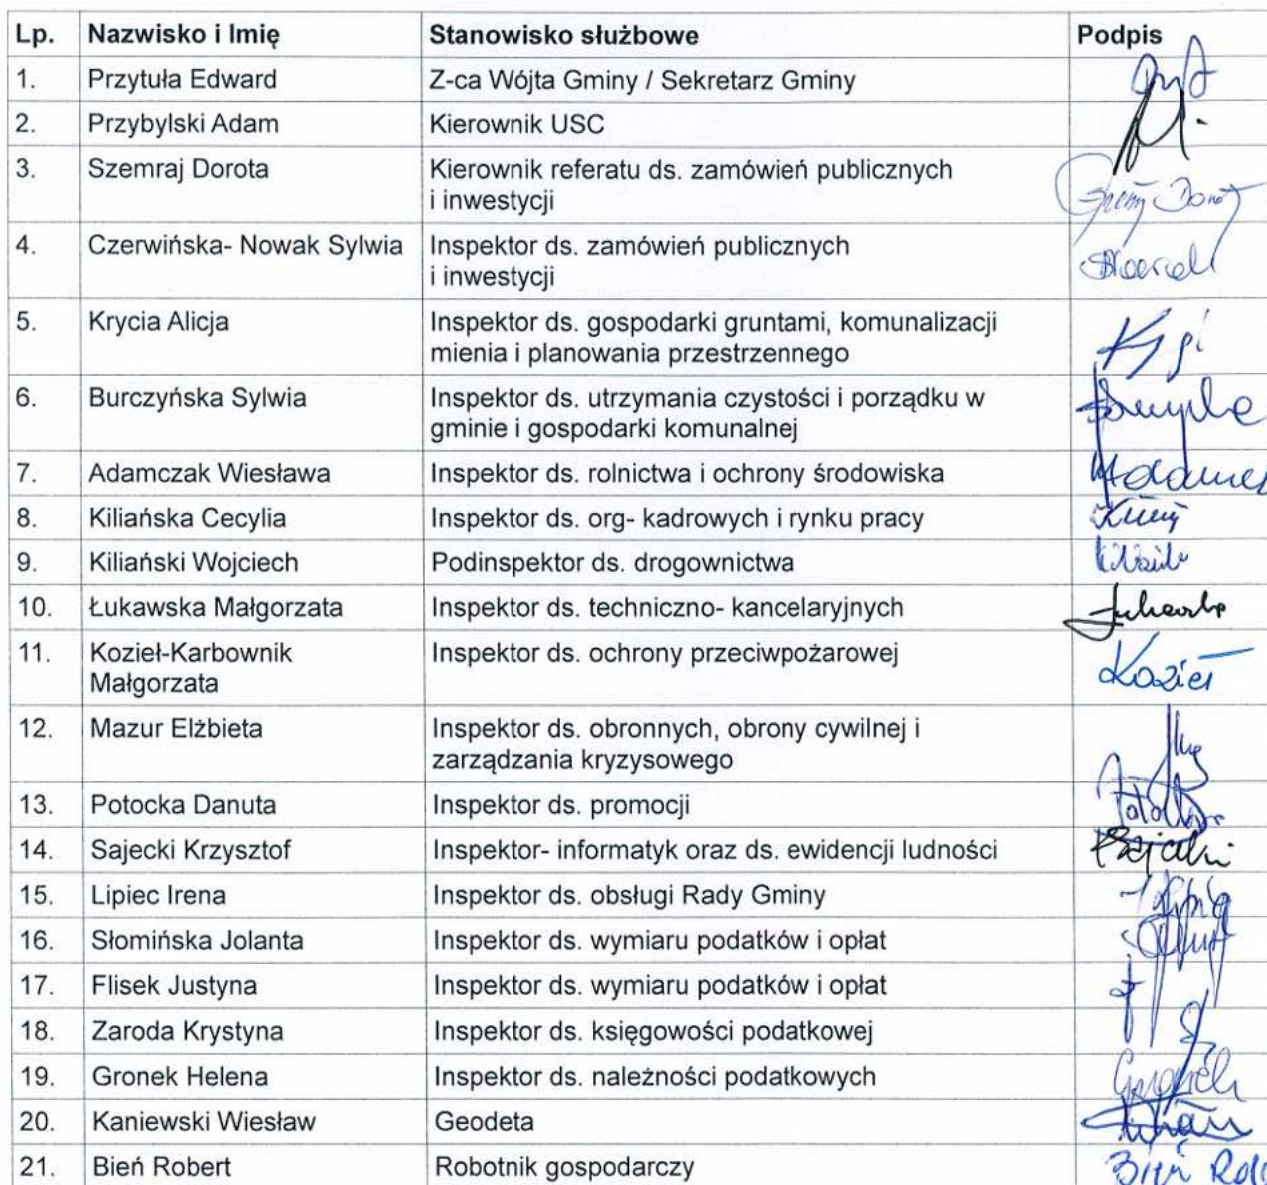 Lp. Nazwisko i Imię Stanowisko służbowe Podpis
1. Przytuła Edward Z-ca Wójta Gminy / Sekretarz Gminy
2. Przybylski Adam Kierownik USC
3. Szemraj Dorota Kierownik referatu ds. zamówień publicznych
i inwestycji
4. Czerwińska- Nowak Sylwia Inspektor ds. zamówień publicznych
i inwestycji
5. Krycia Alicja Inspektor ds. gospodarki gruntami, komunalizacji
mienia i planowania przestrzennego
6. Burczyńska Sylwia Inspektor ds. utrzymania czystości i porządku w
gminie i gospodarki komunalnej
7. Adamczak Wiesława Inspektor ds. rolnictwa i ochrony środowiska
8. Kiliańska Cecylia Inspektor ds. org- kadrowych i rynku pracy
9. Kiliański Wojciech Podinspektor ds. drogownictwa
10. Łukawska Małgorzata Inspektor ds. techniczno- kancelaryjnych
11. Kozieł-Karbownik Inspektor ds. ochrony przeciwpożarowej Kozieł
Małgorzata
12. Mazur Elżbieta Inspektor ds. obronnych, obrony cywilnej i
zarządzania kryzysowego
13. Potocka Danuta Inspektor ds. promocji
14. Sajecki Krzysztof Inspektor- informatyk oraz ds. ewidencji ludności
15. Lipiec Irena Inspektor ds. obsługi Rady Gminy
16. Słomińska Jolanta Inspektor ds. wymiaru podatków i opłat
17. Flisek Justyna Inspektor ds. wymiaru podatków i opłat
18. Zaroda Krystyna Inspektor ds. księgowości podatkowej
19. Gronek Helena Inspektor ds. należności podatkowych
20. Kaniewski Wiesław Geodeta
21. Bień Robert Robotnik gospodarczy Bień